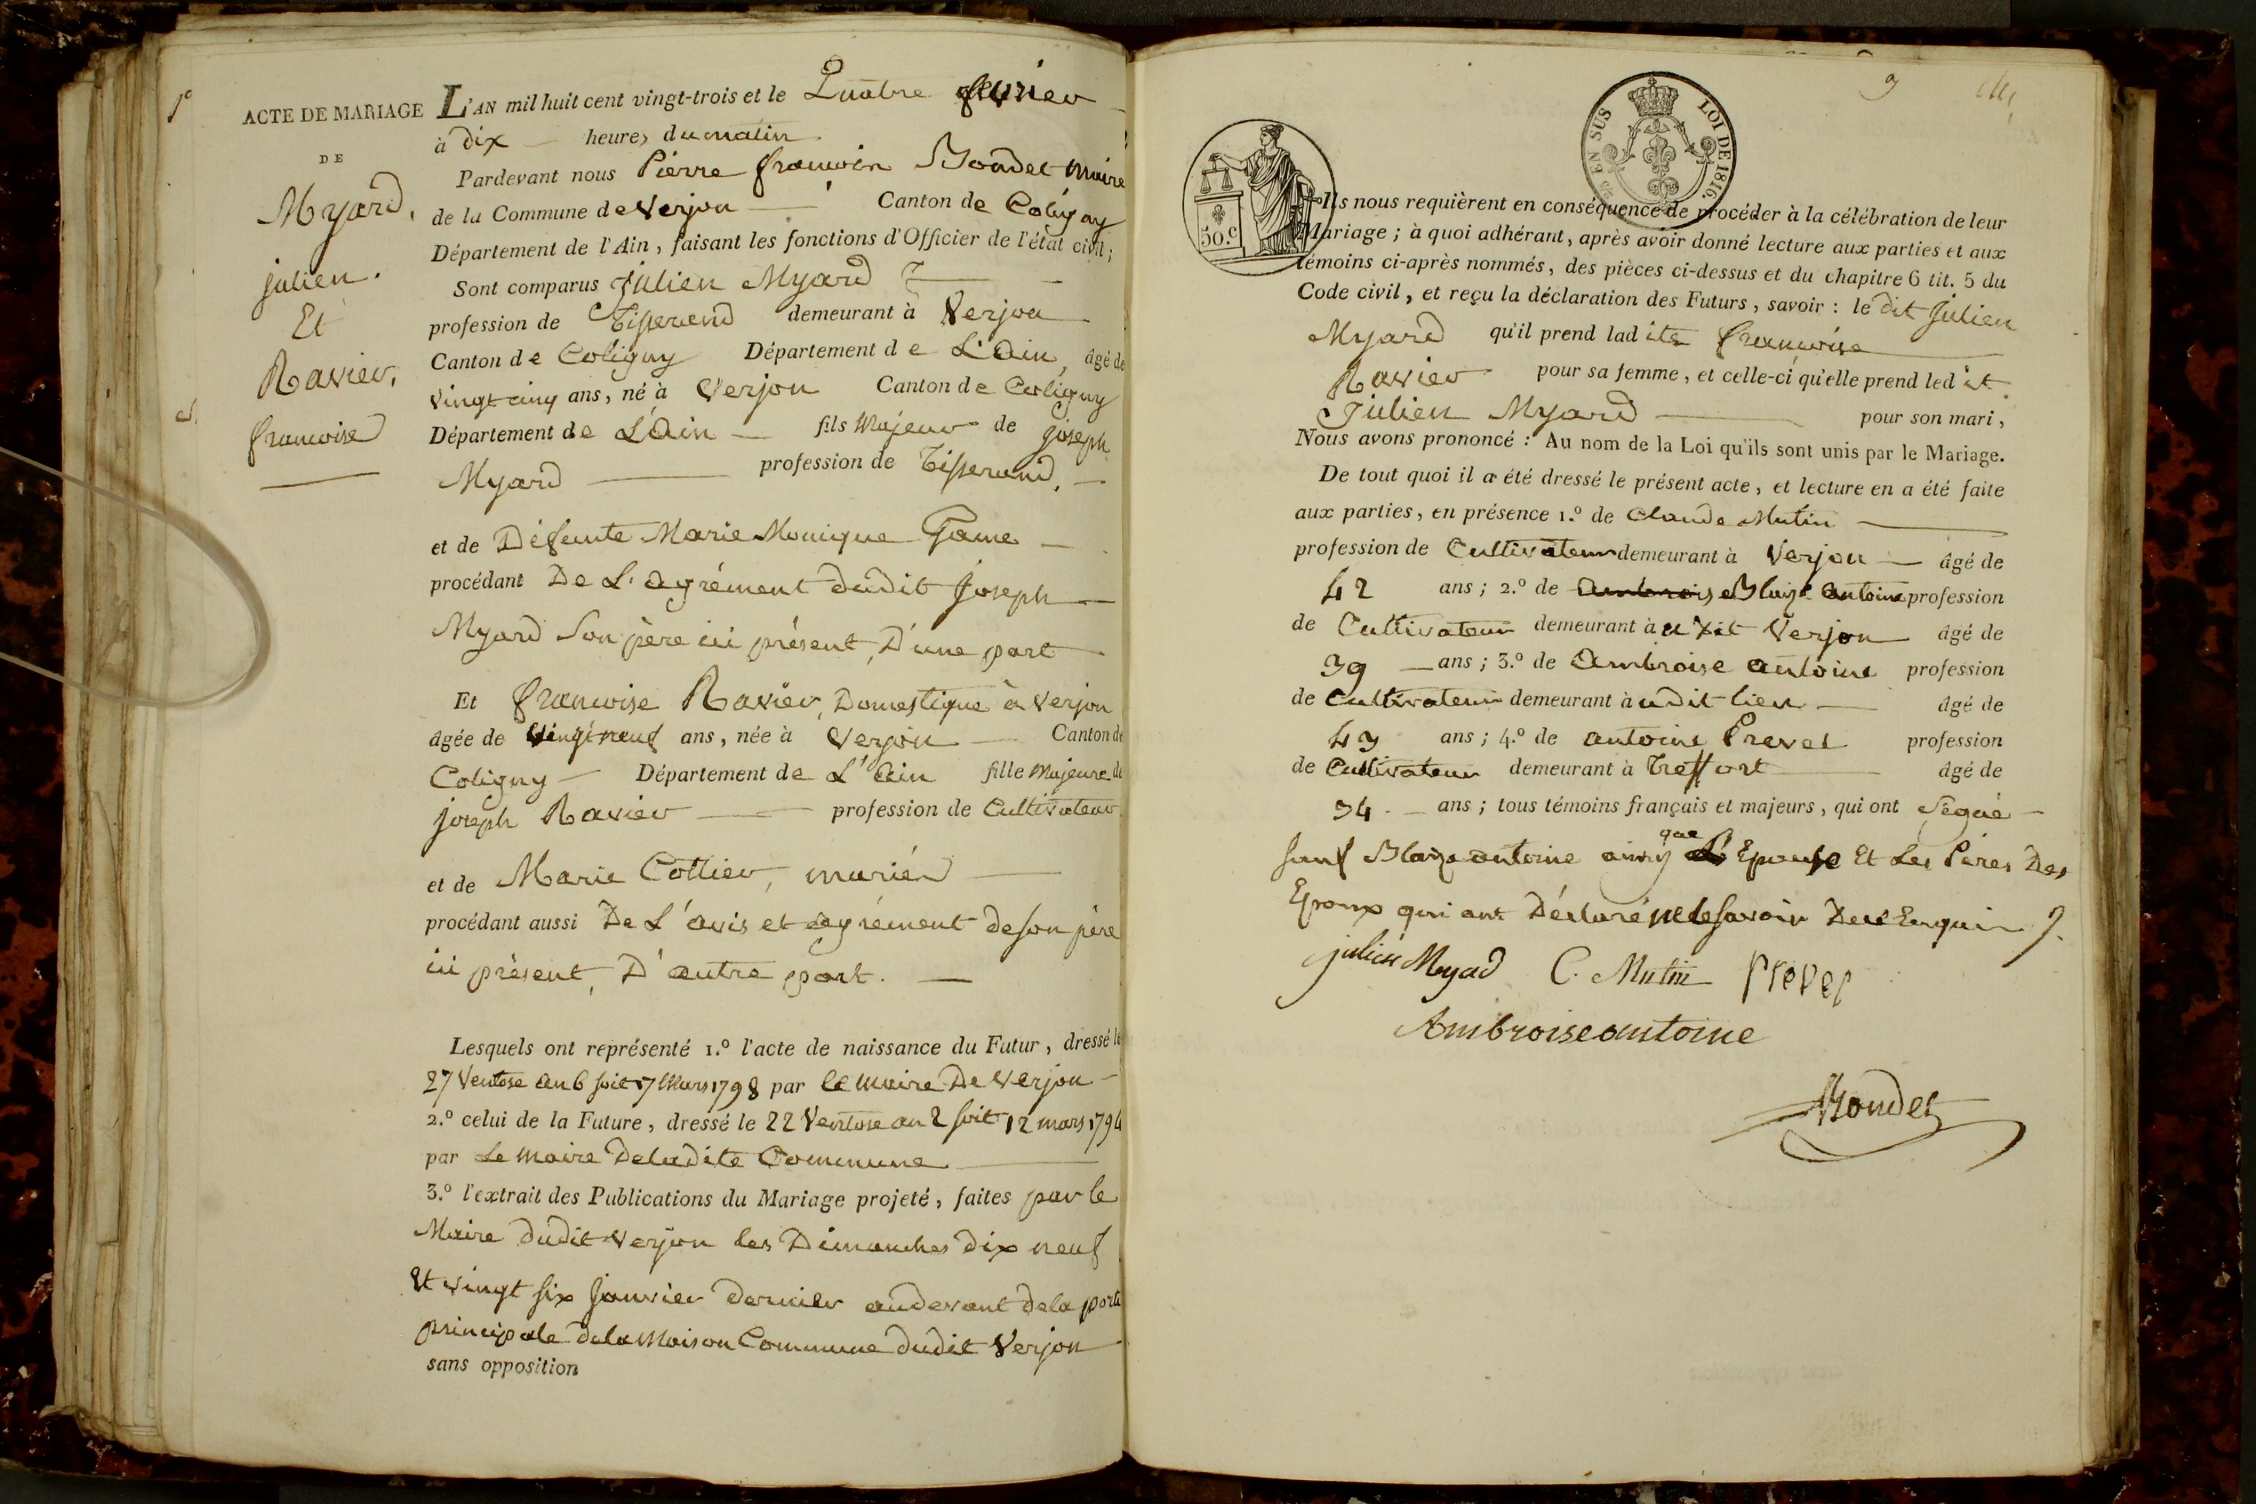 1º
ACTE DE MARIAGE
DE
Myard,
julien.
Et
Ravier,
francoise
L'AN mil huit cent vingt-trois et le Quatre fevrier
à dix heures du matin
Pardevant nous Pierre francois Bondet maire
de la Commune de Verjon Canton de Coligny
Département de l'Ain, faisant les fonctions d'Officier de l'état civil;
Sont comparus Julien Myard
profession de Tisserand demeurant à Verjon
Canton de Coligny Département de L'Ain, âgé de
vingt cinq ans, né à Verjon Canton de Coligny
Département de L'Ain fils Majeur de joseph
Myard profession de Tisserand.
et de Défunte Marie Monique Game
procédant De L'agrément dudit joseph
Myard Son père ici présent, D'une part
Et francoise Ravier, Domestique à Verjon
âgée de vingt neuf ans, née à Verjon Canton de
Coligny Département de L'Ain fille Majeure de
joseph Ravier profession de Cultivateur
et de Marie Cottier, mariés
procédant aussi De L'avis et agrément de son père
ici présent, D'autre part.
Lesquels ont représenté 1.º l'acte de naissance du Futur, dressé le
27 Ventose an 6 soit 17 Mars 1798 par le maire De Verjon
2.º celui de la Future, dressé le 22 Ventose an 2 soit 12 mars 1794
par Le Maire De ladite Commune
3.º l'extrait des Publications du Mariage projeté, faites par le
Maire dudit Verjon les Dimanches dix neuf
Et vingt six Janvier dernier audevant de la porte
principale de la Maison Commune dudit Verjon
sans opposition
9
EN SUS LOI DE 1816.
50.c
Ils nous requièrent en conséquence de procéder à la célébration de leur
Mariage; à quoi adhérant, après avoir donné lecture aux parties et aux
témoins ci-après nommés, des pièces ci-dessus et du chapitre 6 tit. 5 du
Code civil, et reçu la déclaration des Futurs, savoir: le dit Julien
Myard qu'il prend ladite francoise
Ravier pour sa femme, et celle-ci qu'elle prend ledit
Julien Myard pour son mari,
Nous avons prononcé: Au nom de la Loi qu'ils sont unis par le Mariage.
De tout quoi il a été dressé le présent acte, et lecture en a été faite
aux parties, en présence 1.º de Claude Mutin
profession de Cultivateur demeurant à Verjon âgé de
42 ans; 2.º de Ambroise Blaise antoine profession
de Cultivateur demeurant à udit Verjon âgé de
39 ans; 3.º de Ambroise antoine profession
de Cultivateur demeurant à udit lieu âgé de
43 ans; 4.º de antoine Prevet profession
de Cultivateur demeurant à Treffort âgé de
34 ans; tous témoins français et majeurs, qui ont Signé
sauf Blaize antoine ainsy que L'Epouse Et Les Pères Des
Epoux qui ont Déclaré ne le savoir De ce Enquis
julien Myad C. Mutin Prevet
Ambroise antoine
Bondet